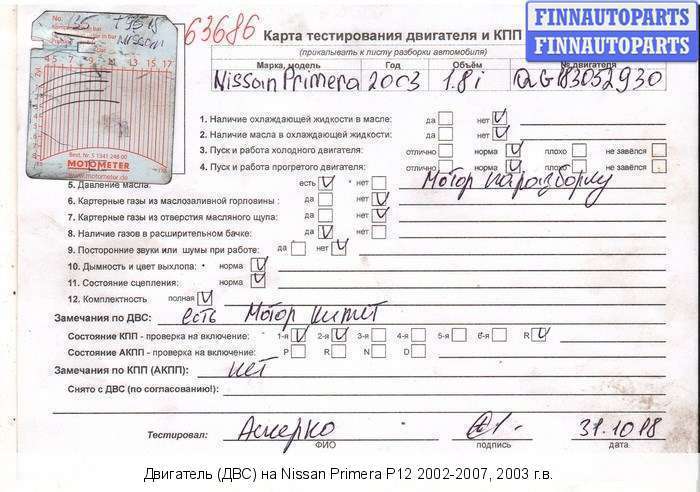 63686
FINNAUTOPARTS
FINNAUTOPARTS
Карта тестирования двигателя и КПП
(прикалывать к листу разборки автомобиля)
Марка, модель Год Объём № двигателя
Nissan Primera 2003 1.8i QG183052930
4 5 7 9 11 13 15 17
Best. Nr. 5 1341 248 00
MOTOMETER
www.motometer.de
1. Наличие охлаждающей жидкости в масле: да нет V
2. Наличие масла в охлаждающей жидкости: да нет V
3. Пуск и работа холодного двигателя: отлично норма V плохо не завёлся
4. Пуск и работа прогретого двигателя: отлично норма V плохо не завёлся
5. Давление масла: есть V нет Мотор на разборку
6. Картерные газы из маслозаливной горловины: да нет V
7. Картерные газы из отверстия масляного щупа: да нет V
8. Наличие газов в расширительном бачке: да V нет
9. Посторонние звуки или шумы при работе: да нет V
10. Дымность и цвет выхлопа: норма V
11. Состояние сцепления: норма V
12. Комплектность полная V
Замечания по ДВС: есть Мотор кипит
Состояние КПП - проверка на включение: 1-я V 2-я V 3-я 4-я 5-я 6-я R V
Состояние АКПП - проверка на включение: P R N D
Замечания по КПП (АКПП): нет
Снято с ДВС (по согласованию!):
Тестировал: Аскерко 31.10.18
ФИО подпись дата
Двигатель (ДВС) на Nissan Primera P12 2002-2007, 2003 г.в.